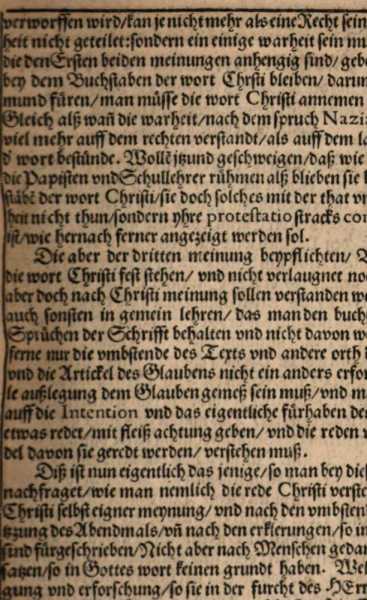 verworffen wird/kan je nicht mehr als eine Recht sein
heit nicht geteilet: sondern ein einige warheit sein mu
die den Ersten beiden meinungen anhengig sind/ gebe
bey dem Buchstaben der wort Chrsti bleiben/ darum
mund füren/ man müsse die wort Christi annemen
Gleich alß wañ die warheit/ nach dem spruch Nazi
viel mehr auff dem rechten verstandt/ als auff dem la
d' wort bestünde. Wolle jtzund geschweigen/ daß wie
die Papisten vnd Schullehrer rühmen alß blieben sie b
stäbē der wort Christi/ sie doch solches mit der that vn
heit nicht thun/ sondern yhre protestatio stracks con
ist/ wie hernach ferner angezeigt werden sol.
Die aber der dritten meinung beypflichten/
die wort Christi fest stehen/ vnd nicht verlaugnet no
aber doch nach Christi meinung sollen verstanden we
auch sonsten in gemein lehren/ das man den buch
Sprüchen der Schrifft behalten vnd nicht davon w
ferne nur die vmbstende des Texts vnd andere orth d
vnd die Artickel des Glaubens nicht ein anders erfor
le außlegung dem Glauben gemeß sein muß/ vnd m
auff die Intention vnd das eigentliche fürhaben des
etwas redet/ mit fleiß achtung geben/ vnd die reden
del davon sie geredt werden/ verstehen muß.
Diß ist nun eigentlich das jenige/ so man bey dies
nachfraget/ wie man nemlich die rede Christi verste
Christi selbst eigner meynung/ vnd nach den vmbsten
tzung des Abendmals/ vñ nach den erklerungen/ so in
sind fürgeschrieben/ Nicht aber nach Menschen gedan
satzen/ so in Gottes wort keinen grundt haben. Wel
gung vnd erforschung/ so sie in der furcht des HErrn